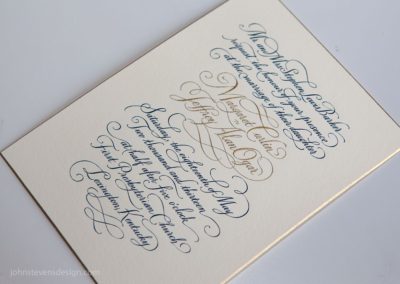 Mr. and Mrs. Stephen Lucas Barker
request the honour of your presence
at the marriage of their daughter
Jeffrey Alan Oyer
Saturday, the eighteenth of May
Two thousand and thirteen
at half after five o'clock
First Presbyterian Church
Lexington, Kentucky
johnstevensdesign.com